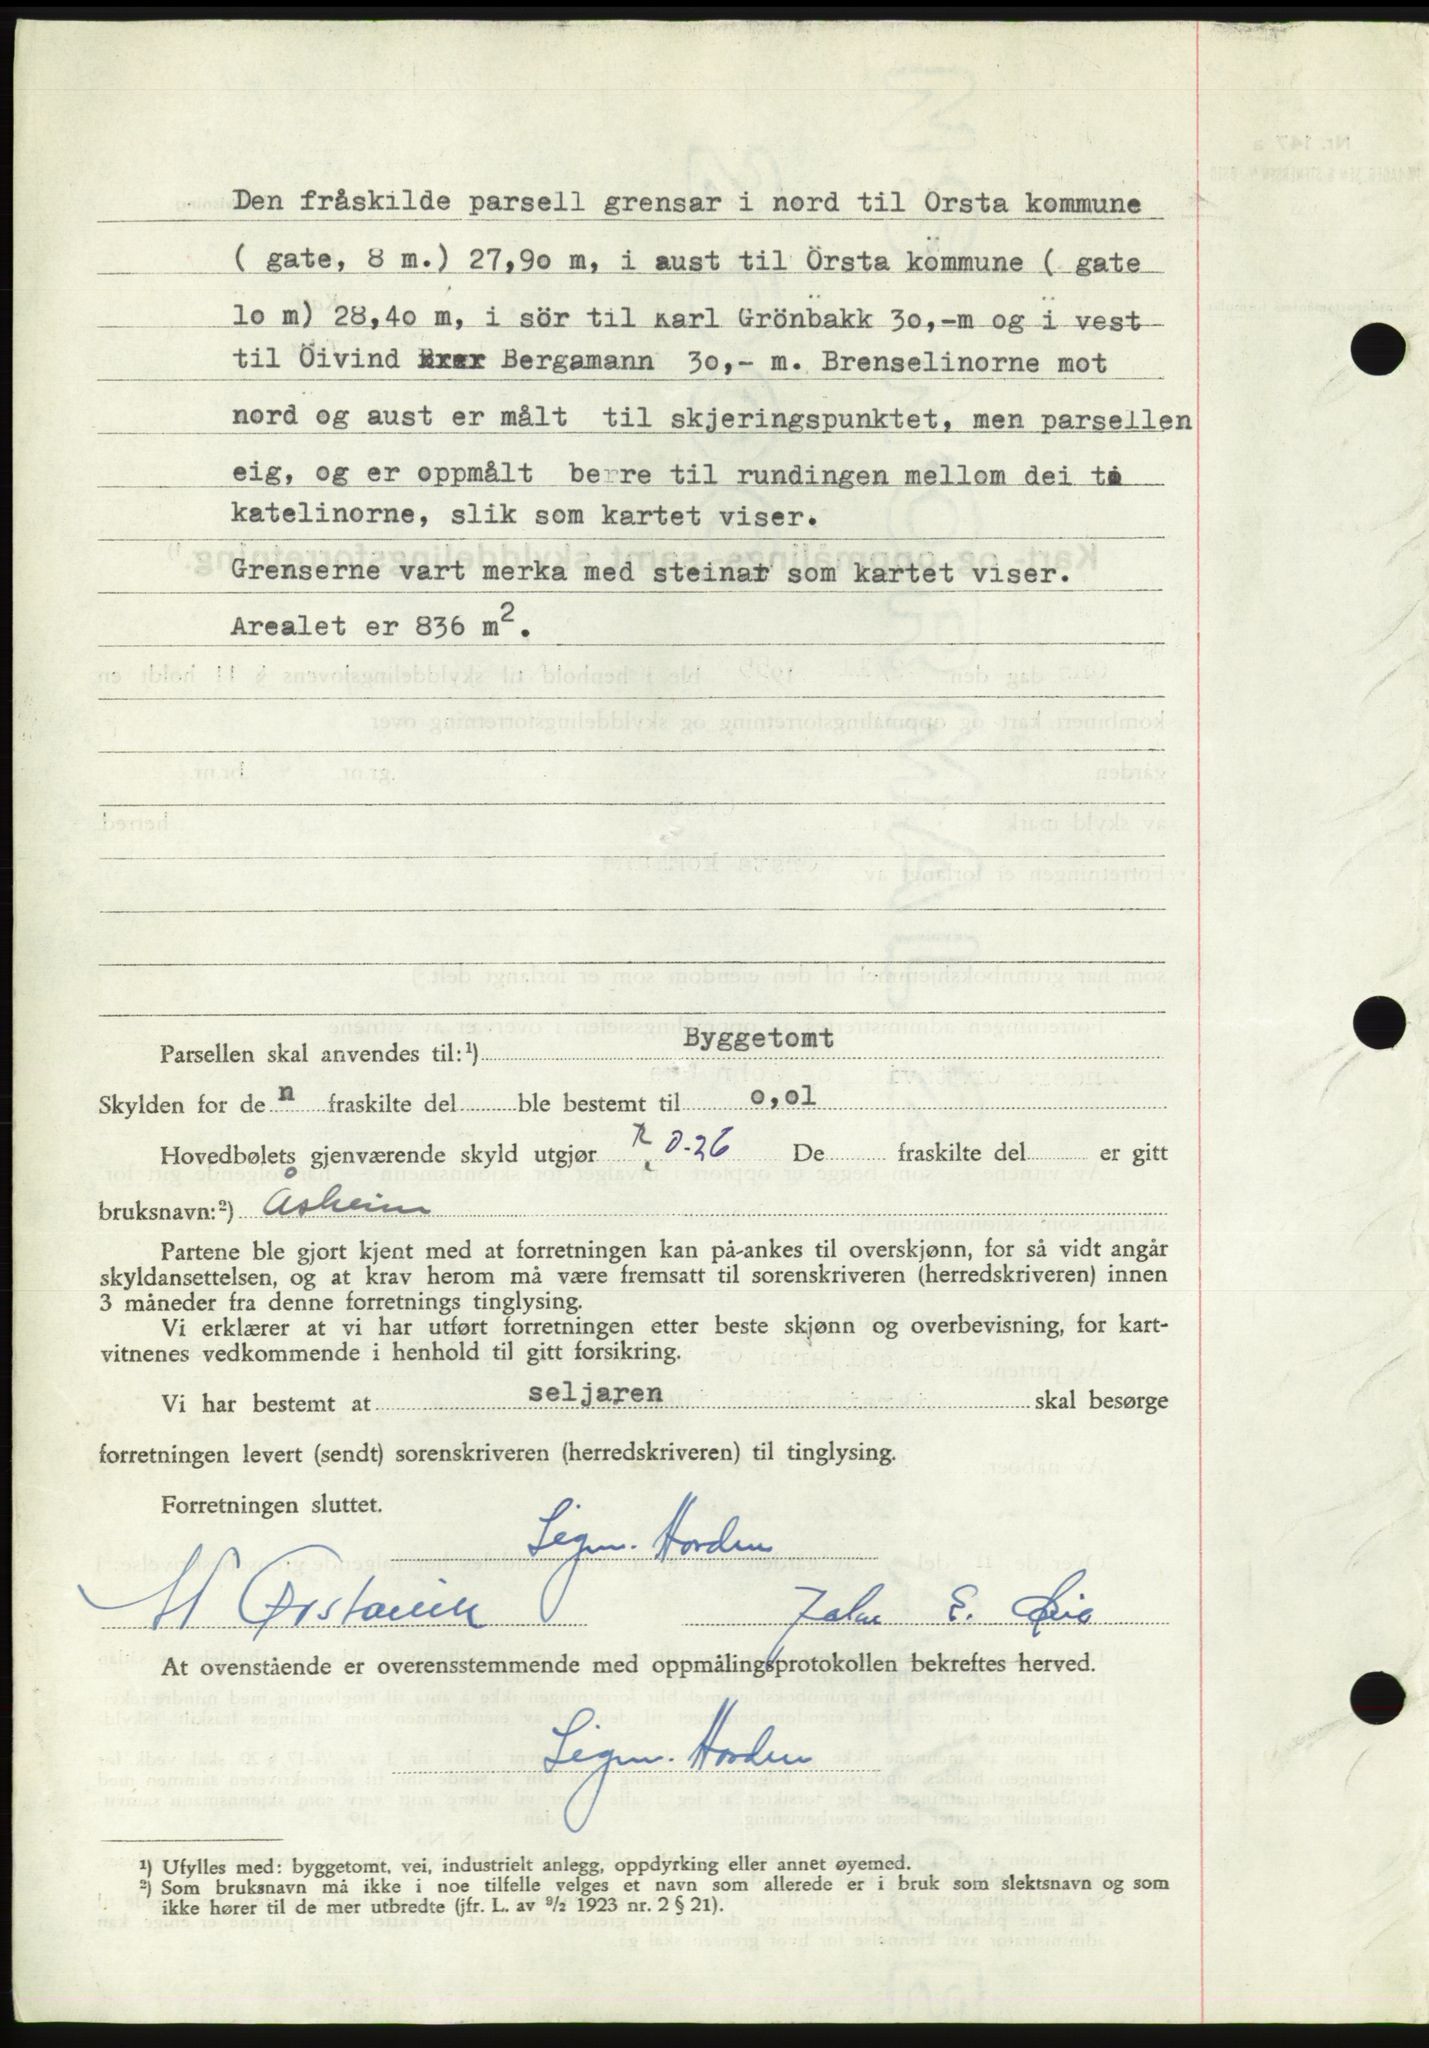 Den fråskilde parsell grensar i nord til Orsta kommune
( gate, 8 m.) 27,90 m, i aust til Örsta kommune ( gate
lo m) 28,40 m, i sör til Karl Grönbakk 30,-m og i vest
til Öivind Bergamann 30,- m. Brenselinorne mot
nord og aust er målt til skjeringspunktet, men parsellen
eig, og er oppmålt berre til rundingen mellom dei to
katelinorne, slik som kartet viser.
Grenserne vart merka med steinar som kartet viser.
Arealet er 836 m².
Parsellen skal anvendes til:¹) Byggetomt
Skylden for de n fraskilte del ble bestemt til o,ol
Hovedbølets gjenværende skyld utgjør 0-26 De fraskilte del er gitt
bruksnavn:²) Åsheim
Partene ble gjort kjent med at forretningen kan på-ankes til overskjønn, for så vidt angår
skyldansettelsen, og at krav herom må være fremsatt til sorenskriveren (herredskriveren) innen
3 måneder fra denne forretnings tinglysing.
Vi erklærer at vi har utført forretningen etter beste skjønn og overbevisning, for kart-
vitnenes vedkommende i henhold til gitt forsikring.
Vi har bestemt at seljaren skal besørge
forretningen levert (sendt) sorenskriveren (herredskriveren) til tinglysing.
Forretningen sluttet.
Sigm. Horden
Ørstavik E.
At ovenstående er overensstemmende med oppmålingsprotokollen bekreftes herved.
Sigm. Horden
¹) Ufylles med: byggetomt, vei, industrielt anlegg, oppdyrking eller annet øyemed.
²) Som bruksnavn må ikke i noe tilfelle velges et navn som allerede er i bruk som slektsnavn og som
ikke hører til de mer utbredte (jfr. L. av ⁹/₂ 1923 nr. 2 § 21).